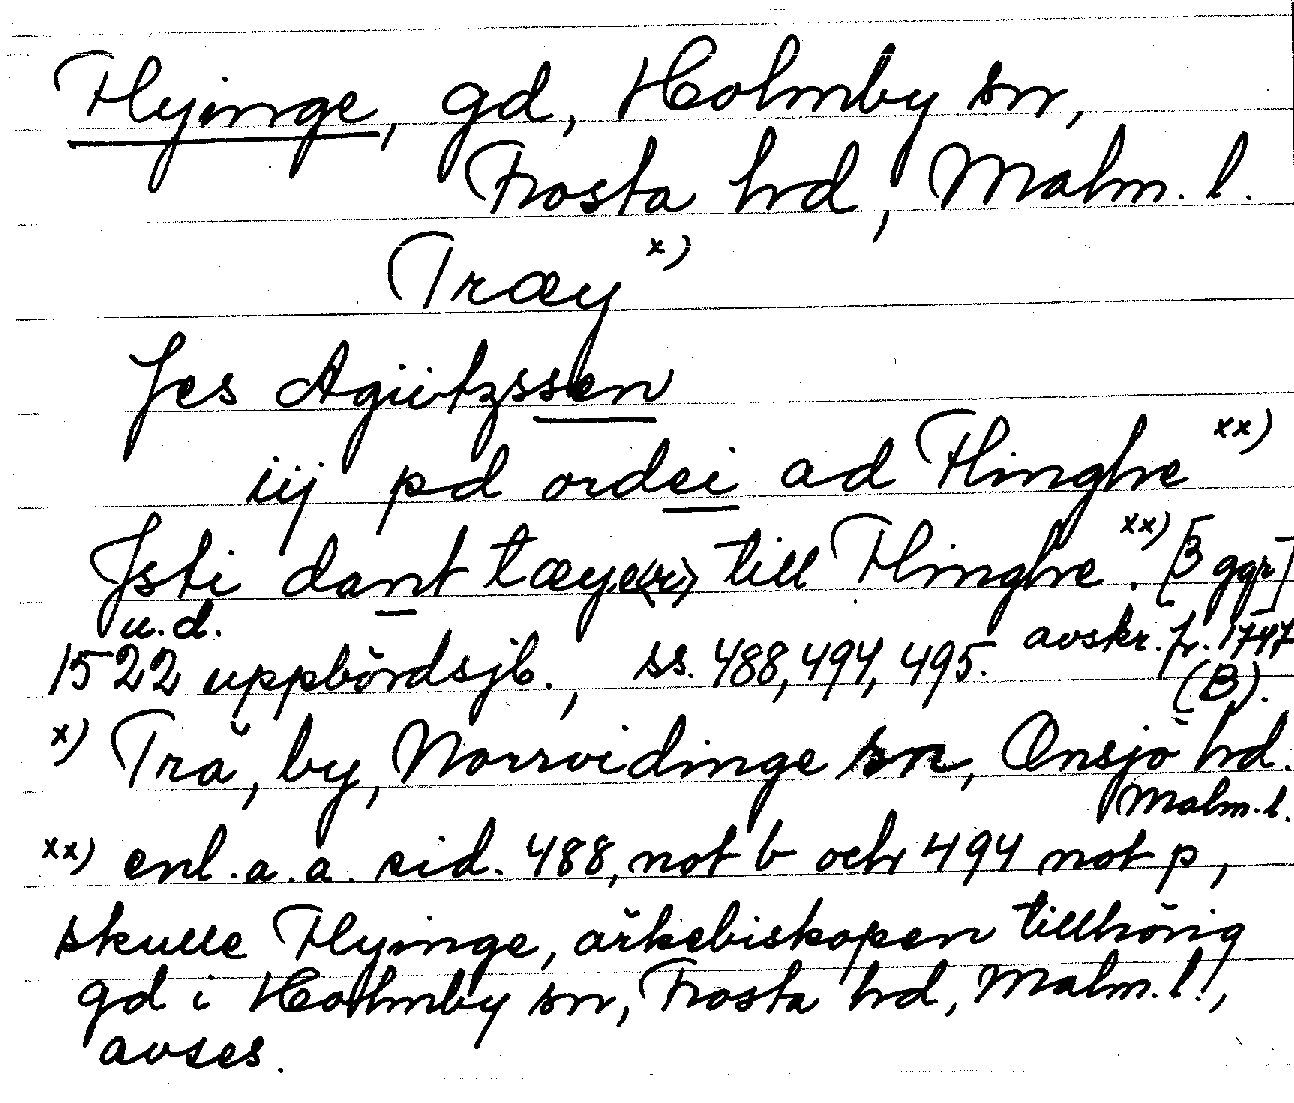 Flyinge, gd, Holmby sn,
Frosta hd, Malm. l.
Træy x)
Jes Agüitzssen
iij pd ordei ad Flinghe xx)
Jsti dant tæye(r) till Flinghe xx). [3 ggr]
u.d.
1522 uppbördsjb., ss. 488, 494, 495. avskr. fr. 1747 (B).
x) Trä, by, Norrvidinge sn, Onsjö hd.
Malm. l.
xx) enl. a. a. sid. 488, not b och 494 not p,
skulle Flyinge, ärkebiskopen tillhörig
gd i Holmby sn, Frosta hd, Malm. l.,
avses.